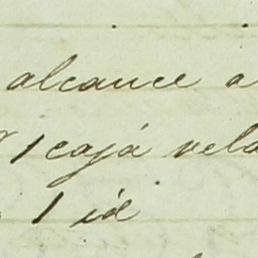 alcance a
1 cajá vela
1 id